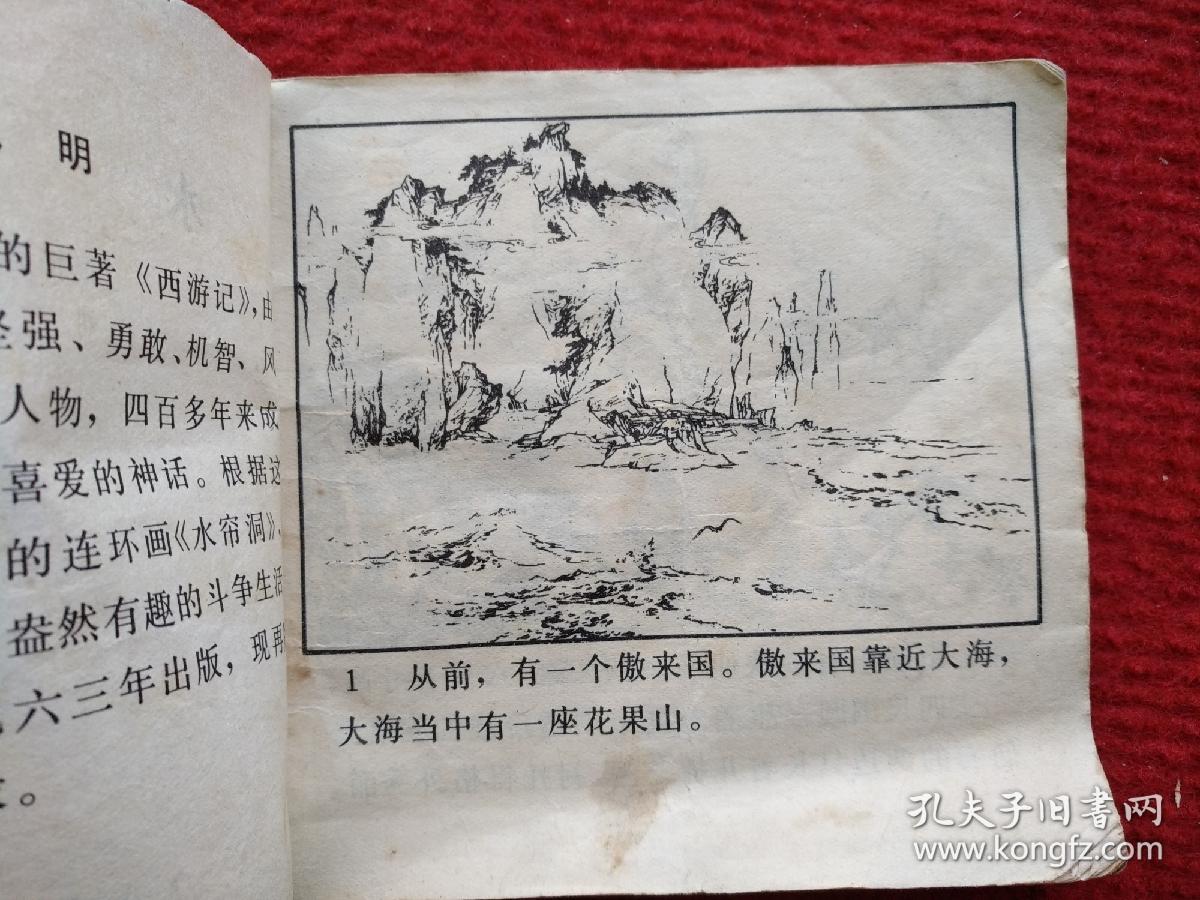 明
的巨著《西游记》,由
坚强、勇敢、机智、风
人物，四百多年来成
喜爱的神话。根据这
的连环画《水帘洞》,
盎然有趣的斗争生活
六三年出版，现再
。
1 从前，有一个傲来国。傲来国靠近大海，
大海当中有一座花果山。
孔夫子旧书网
www.kongfz.com